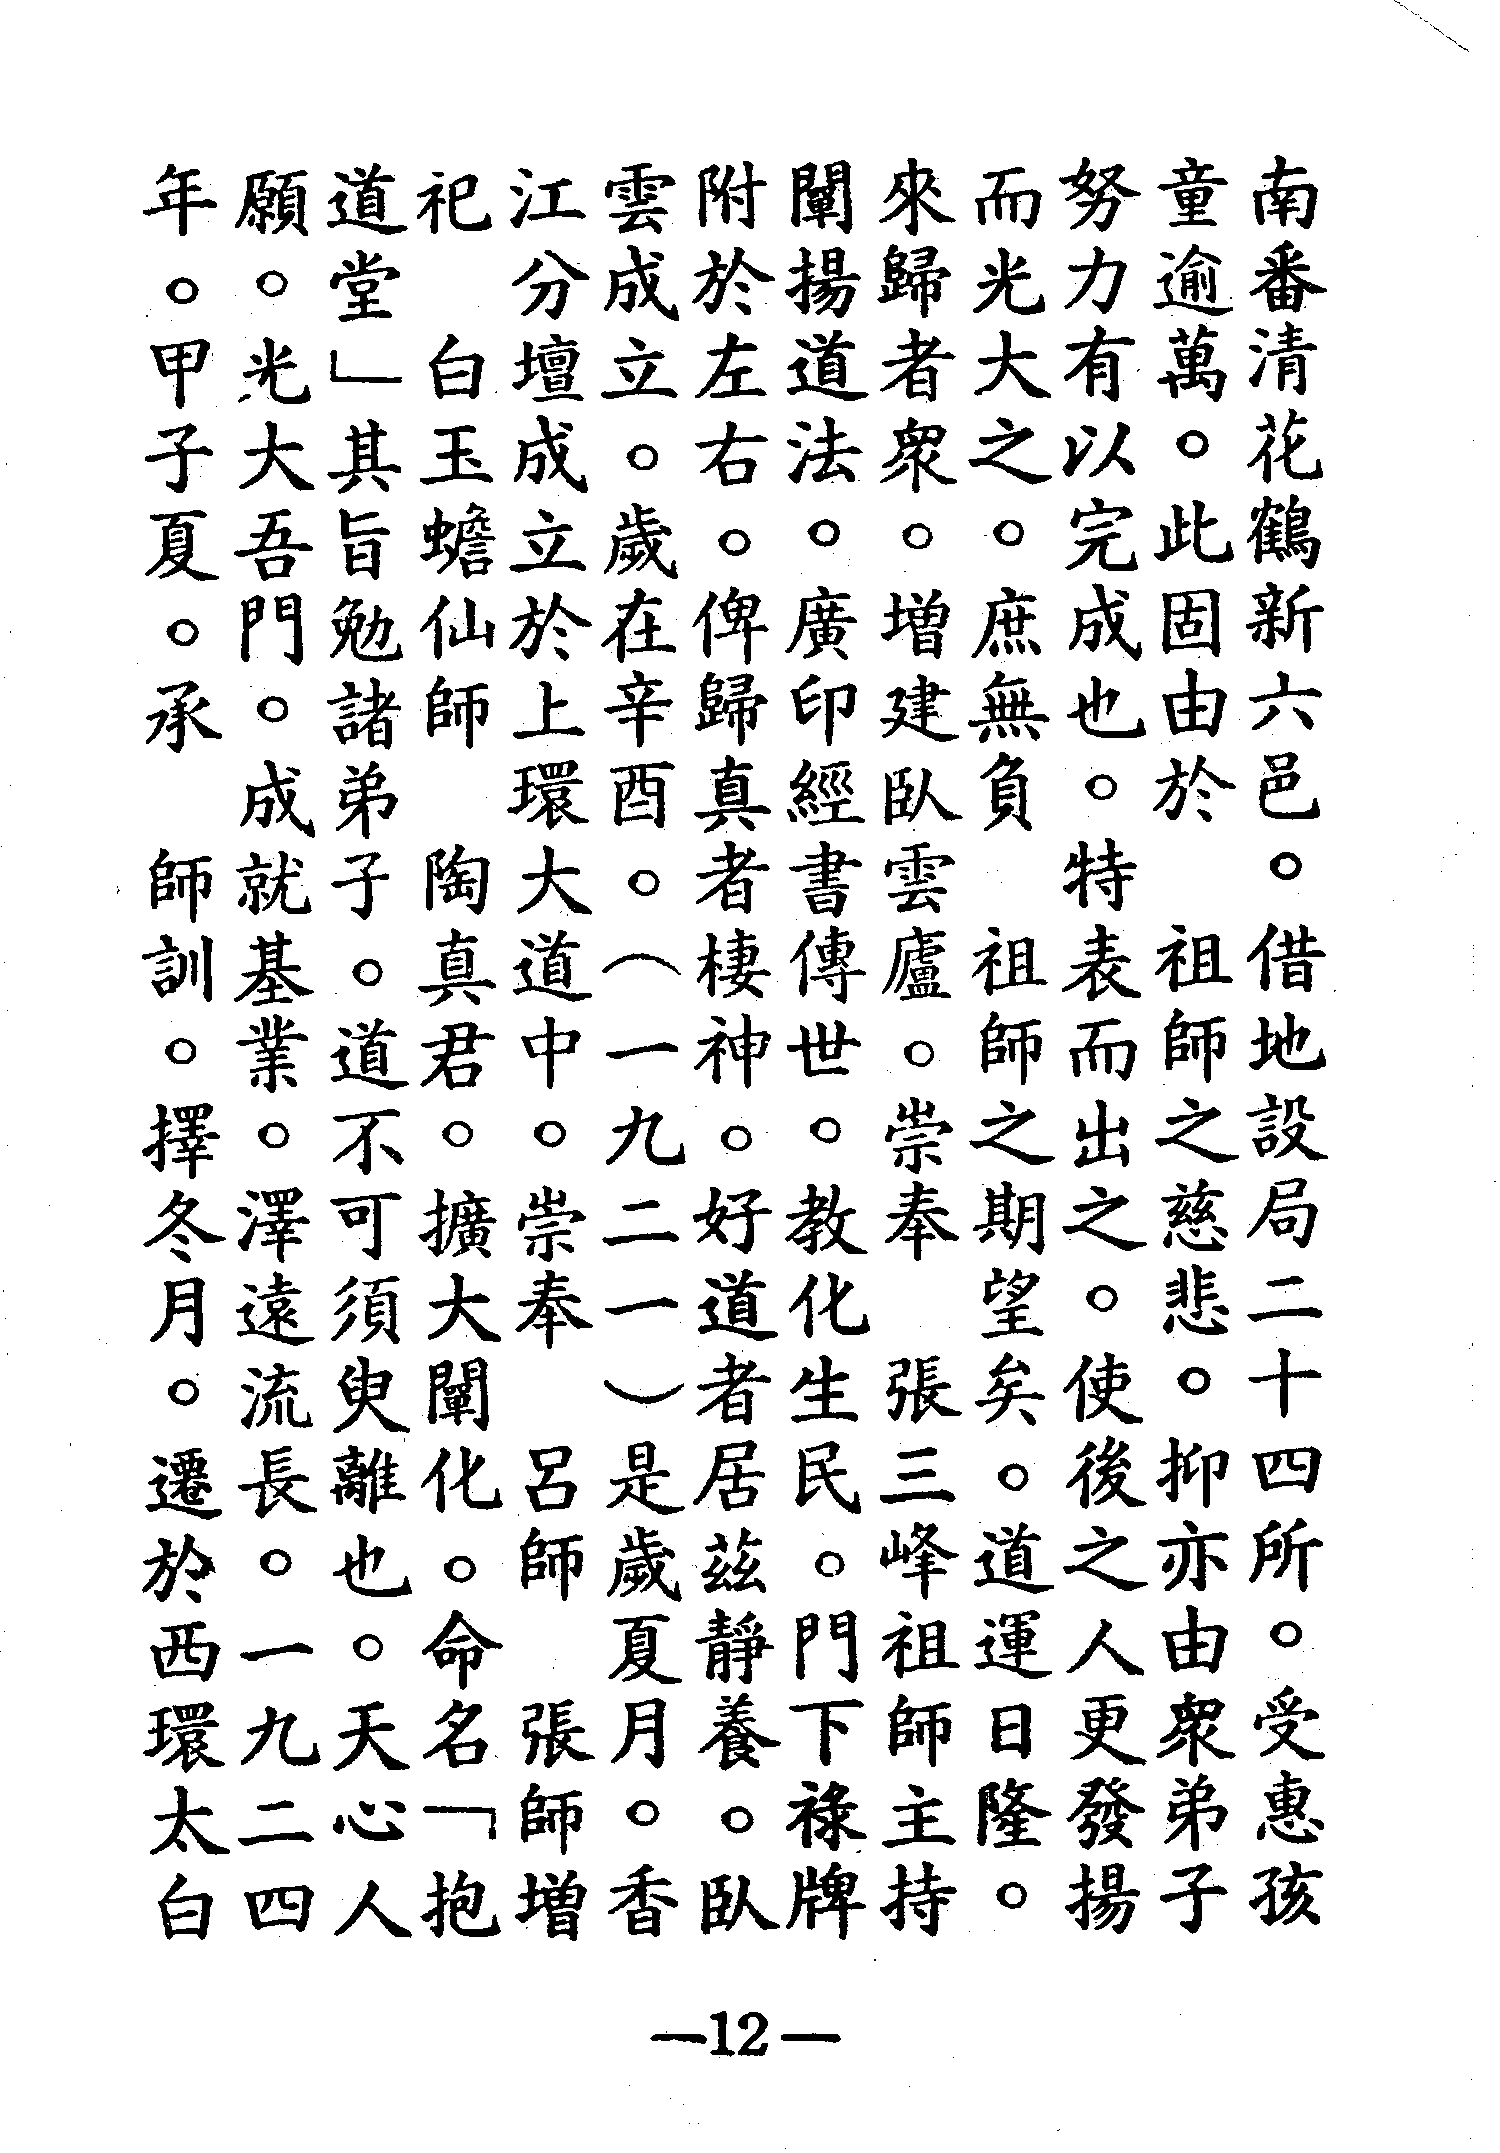 南番清花鶴新六邑。借地設局二十四所。受惠孩
童逾萬。此固由於　祖師之慈悲。抑亦由眾弟子
努力有以完成也。特表而出之。使後之人更發揚
而光大之。庶無負　祖師之期望矣。道運日隆。
來歸者眾。增建臥雲廬。崇奉　張三峰祖師主持
闡揚道法。廣印經書傳世。教化生民。門下祿牌
附於左右。俾歸真者棲神。好道者居茲靜養。臥
雲成立。歲在辛酉。（一九二一）是歲夏月。香
江分壇成立於上環大道中。崇奉　呂師　張師增
祀　白玉蟾仙師　陶真君。擴大闡化。命名「抱
道堂」其旨勉諸弟子。道不可須臾離也。天心人
願。光大吾門。成就基業。澤遠流長。一九二四
年。甲子夏。承　師訓。擇冬月。遷於西環太白
—12—